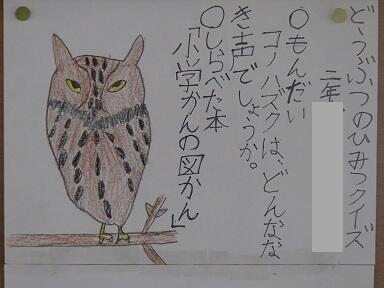 どうぶつのひみつクイズ
二年
○もんだい
コノハズクは、どんなな
き声でしょうか。
○しらべた本
「小学かんの図かん」